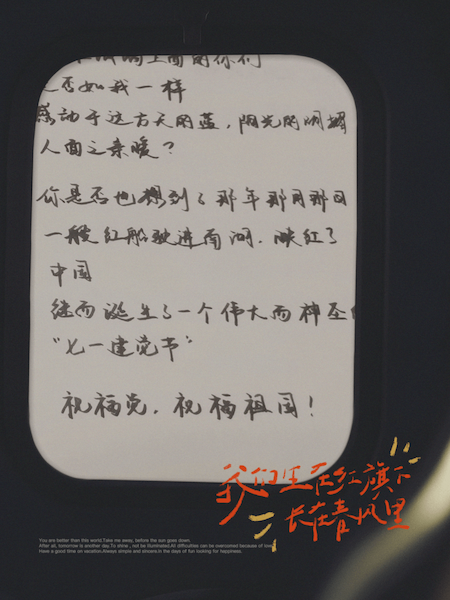 上面的你们
是否如我一样
感动于这方天的蓝,阳光的明媚
人面之亲暖?
你是否也想到了那年那月那日
一艘红船驶进南湖.映红了
中国
继而诞生了一个伟大而神圣的
“七一建党节”
祝福党.祝福祖国!
我们生在红旗下
长在春风里
You are better than this world.Take me away, before the sun goes down.
After all, tomorrow is another day.To shine , not be illuminated.All difficulties can be overcomed because of love.
Have a good time on vacation.Always simple and sincere.in the days of fun looking for happiness.